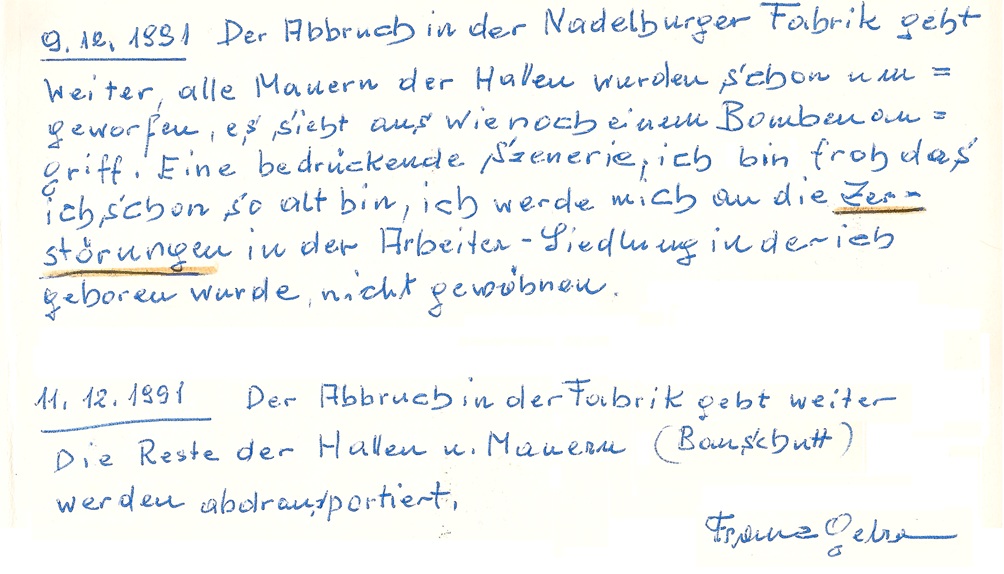 9.12.1991 Der Abbruch in der Nadelburger Fabrik geht
weiter, alle Mauern der Hallen wurden schon um =
geworfen, es sieht aus wie noch einem Bombenan =
griff. Eine bedrückende Szenerie, ich bin froh das
ich schon so alt bin, ich werde mich an die Zer =
störungen in der Arbeiter - Siedlung in der ich
geboren wurde, nicht gewöhnen.
11.12.1991 Der Abbruch in der Fabrik geht weiter
Die Reste der Hallen u. Mauern (Bauschutt)
werden abdransportiert.
Franz